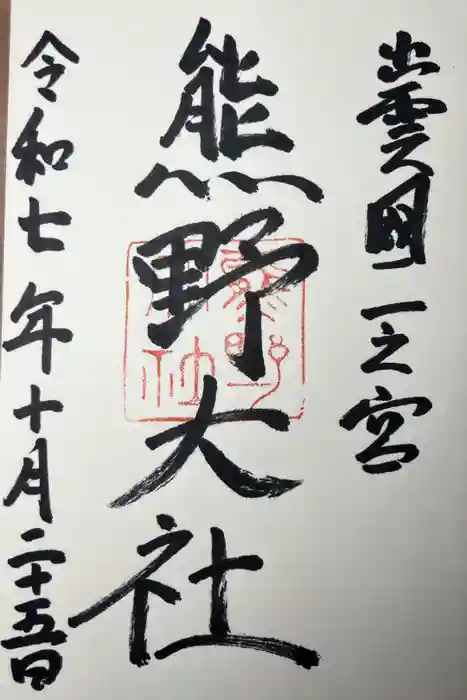 出雲國一之宮
熊野大社
令和七年十月二十五日
熊野大社